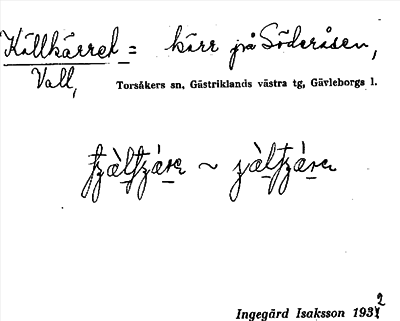 Källkärret = kärr på Söderåsen,
Vall,
Torsåkers sn, Gästriklands västra tg, Gävleborgs l.
Ingegärd Isaksson 1932